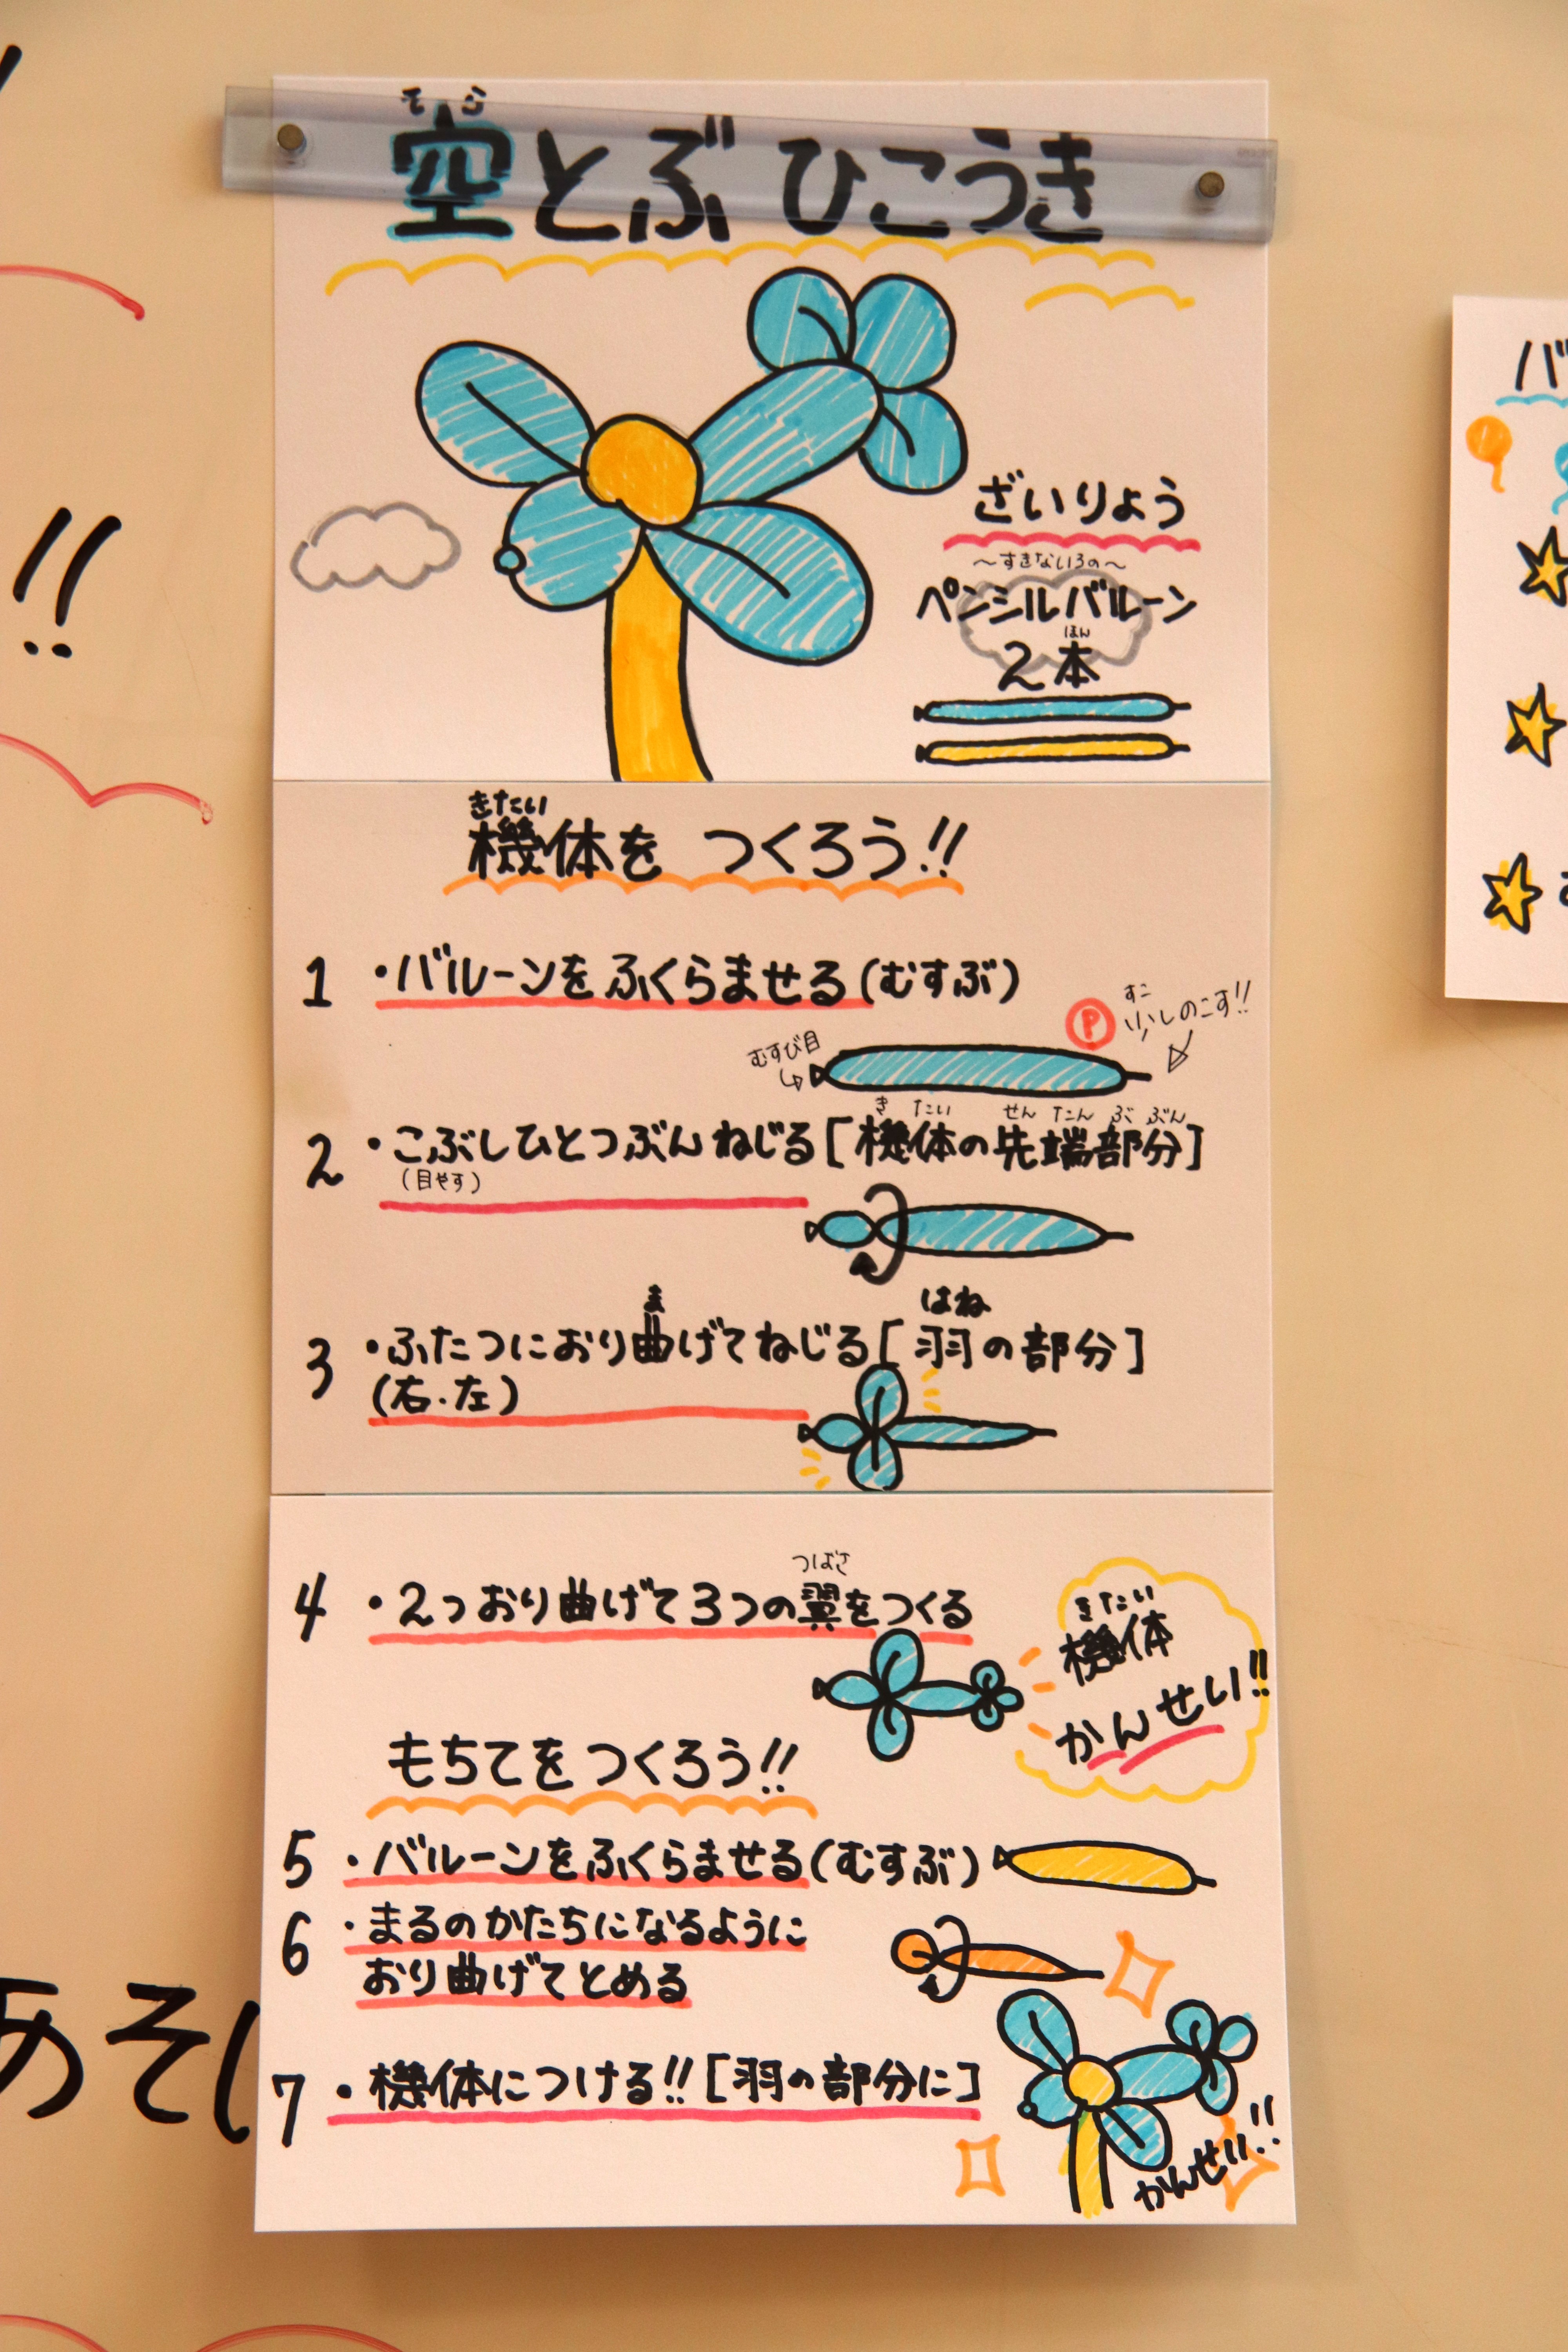 そら
空とぶ ひこうき
ざいりょう
〜すきないろの〜
ペンシルバルーン
ほん
2本
きたい
機体を つくろう!!
1 ・バルーンを ふくらませる(むすぶ)
むすび目
P
すこ
少しのこす!!
き たい せん たん ぶ ぶん
2 ・こぶしひとつぶん ねじる[機体の先端部分]
(目やす)
ま はね
3 ・ふたつにおり曲げてねじる[羽の部分]
(右・左)
つばさ
4 ・2つおり曲げて3つの翼をつくる
きたい
機体
かんせい!!
もちてを つくろう!!
5 ・バルーンをふくらませる(むすぶ)
6 ・まるのかたちになるように
おり曲げてとめる
7 ・機体につける!![羽の部分に]
かんせい!!
!!
あそ
バ